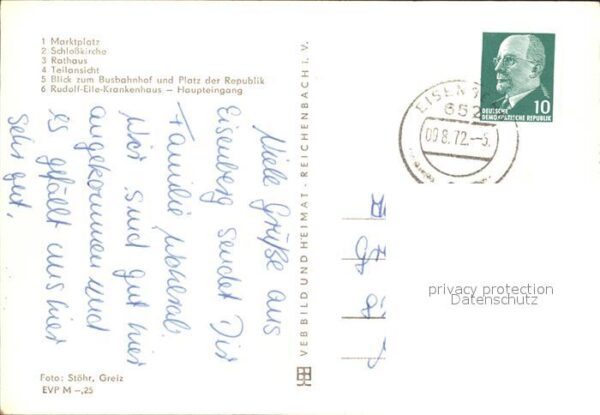 1 Marktplatz
2 Schloßkirche
3 Rathaus
4 Teilansicht
5 Blick zum Busbahnhof und Platz der Republik
6 Rudolf-Elle-Krankenhaus — Haupteingang
Viele Grüße aus
Eisenberg sendet Dir
Familie
Wir sind gut hier
angekommen und
es gefällt uns hier
sehr gut.
Foto: Stöhr, Greiz
EVP M -,25
VEB BILD UND HEIMAT · REICHENBACH I. V.
652
09.8.72.-5.
10
DEUTSCHE
DEMOKRATISCHE REPUBLIK
privacy protection
Datenschutz